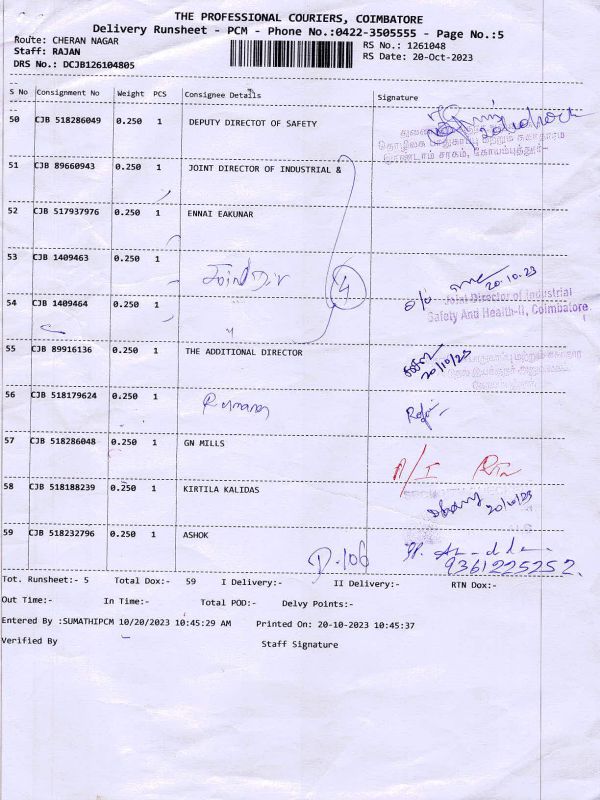 THE PROFESSIONAL COURIERS, COIMBATORE
Delivery Runsheet - PCM - Phone No.:0422-3505555 - Page No.:5
Route: CHERAN NAGAR
RS No.: 1261048
Staff: RAJAN
RS Date: 20-Oct-2023
DRS No.: DCJB126104805
S No Consignment No Weight PCS Consignee Details Signature
50 CJB 518286049 0.250 1 DEPUTY DIRECTOT OF SAFETY
51 CJB 89660943 0.250 1 JOINT DIRECTOR OF INDUSTRIAL &
52 CJB 517937976 0.250 1 ENNAI EAKUNAR
53 CJB 1409463 0.250 1 Joint Dir 4 20.10.23
54 CJB 1409464 0.250 1 " Joint Director of Industrial
Safety And Health-II, Coimbatore
55 CJB 89916136 0.250 1 THE ADDITIONAL DIRECTOR 20/10/23
56 CJB 518179624 0.250 1
57 CJB 518286048 0.250 1 GN MILLS
58 CJB 518188239 0.250 1 KIRTILA KALIDAS 20/10/23
59 CJB 518232796 0.250 1 ASHOK D-106
9361225252.
Tot. Runsheet:- 5 Total Dox:- 59 I Delivery:- II Delivery:- RTN Dox:-
Out Time:- In Time:- Total POD:- Delvy Points:-
Entered By :SUMATHIPCM 10/20/2023 10:45:29 AM Printed On: 20-10-2023 10:45:37
Verified By Staff Signature